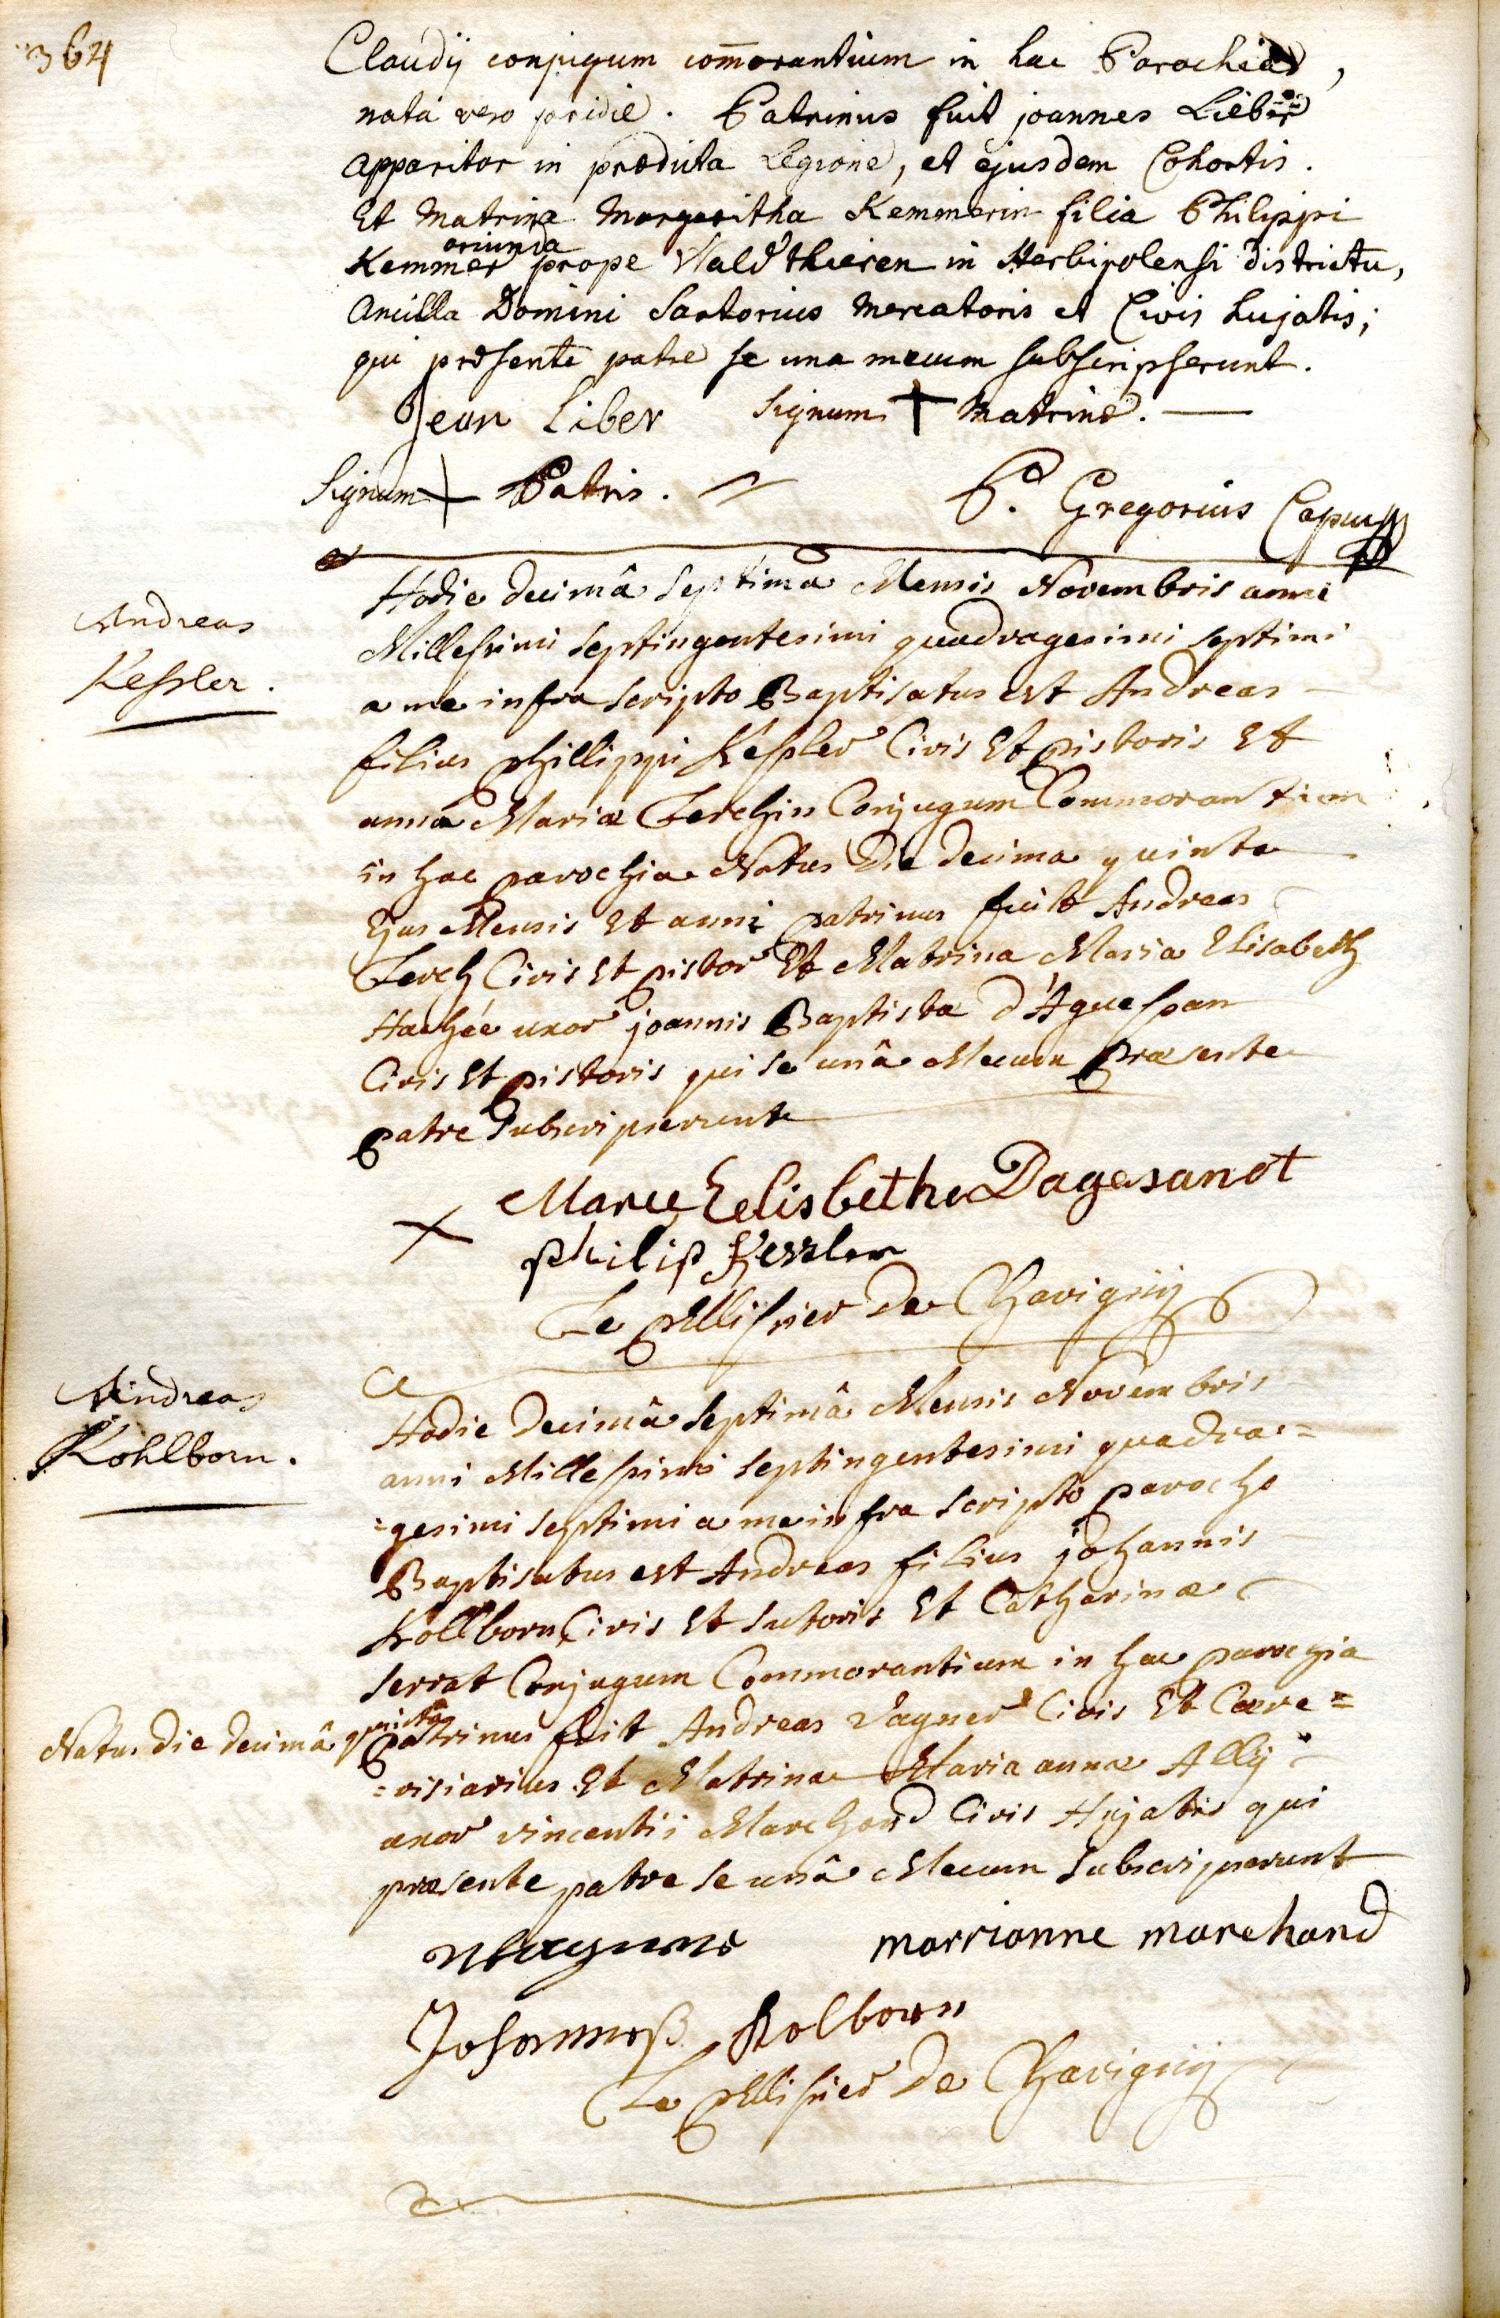 364
Claudÿ conjugum com̄orantium in hac Parochia,
nata vero pridie. Patrinus fuit joannes Lieber
apparitor in prædicta Legione, et ejusdem Cohortis.
Et Matrina Margaritha Kemmerin filia Philippi
oriunda
Kemmer prope Waldthieren in Herbipolensi districtu,
Ancilla Domini Sartorius Mercatoris et Civis hujatis;
qui præsente patre se una mecum subscripserunt.
Jean Liber Signum + Matrinæ.
Signum + Patris. P. Gregorius Capuc
Andreas
Kessler.
Hodie decimâ septima Mensis Novembris anni
Millesimi septingentesimi quadragesimi septimi
a me infra scripto Baptisatus est Andreas
filius phillippi Kessler Civis Et pistoris Et
anna Mariæ Lerchin Conjugum Commorantium
in hac parochia Natus Die decima quinta
Ejus Mensis Et anni patrinus fuit Andreas
Lerch Civis Et pistor Et Matrina Maria Elisabeth
Hachée uxor joannis Baptistæ d'Aguesean
Civis Et pistoris qui se unâ Mecum Præsente
patre subscripserunt
+ Marie Eelisbethe Dagesanot
philip Kessler
Le Pellissier De Chavigny
Andreas
Kohlborn.
Hodie decimâ septimâ Mensis Novembris
anni Millesimi septingentesimi quadra=
=gesimi septimi a me infra scripto parocho
Baptisatus est Andreas filius johannis
Kollborn Civis Et sutoris Et Catharinæ
serrat Conjugum Commorantium in hac parochia
Natus die decimâ quinta patrinus fuit Andreas Vagner Civis Et Cere=
=visiarius Et Matrina Maria anna Ally
uxor vincentii Marchand Civis Hujatis qui
præsente patre se unâ Mecum subscripserunt
marrianne marchand
Johanneß Kolborn
Le Pellissier De Chavigny